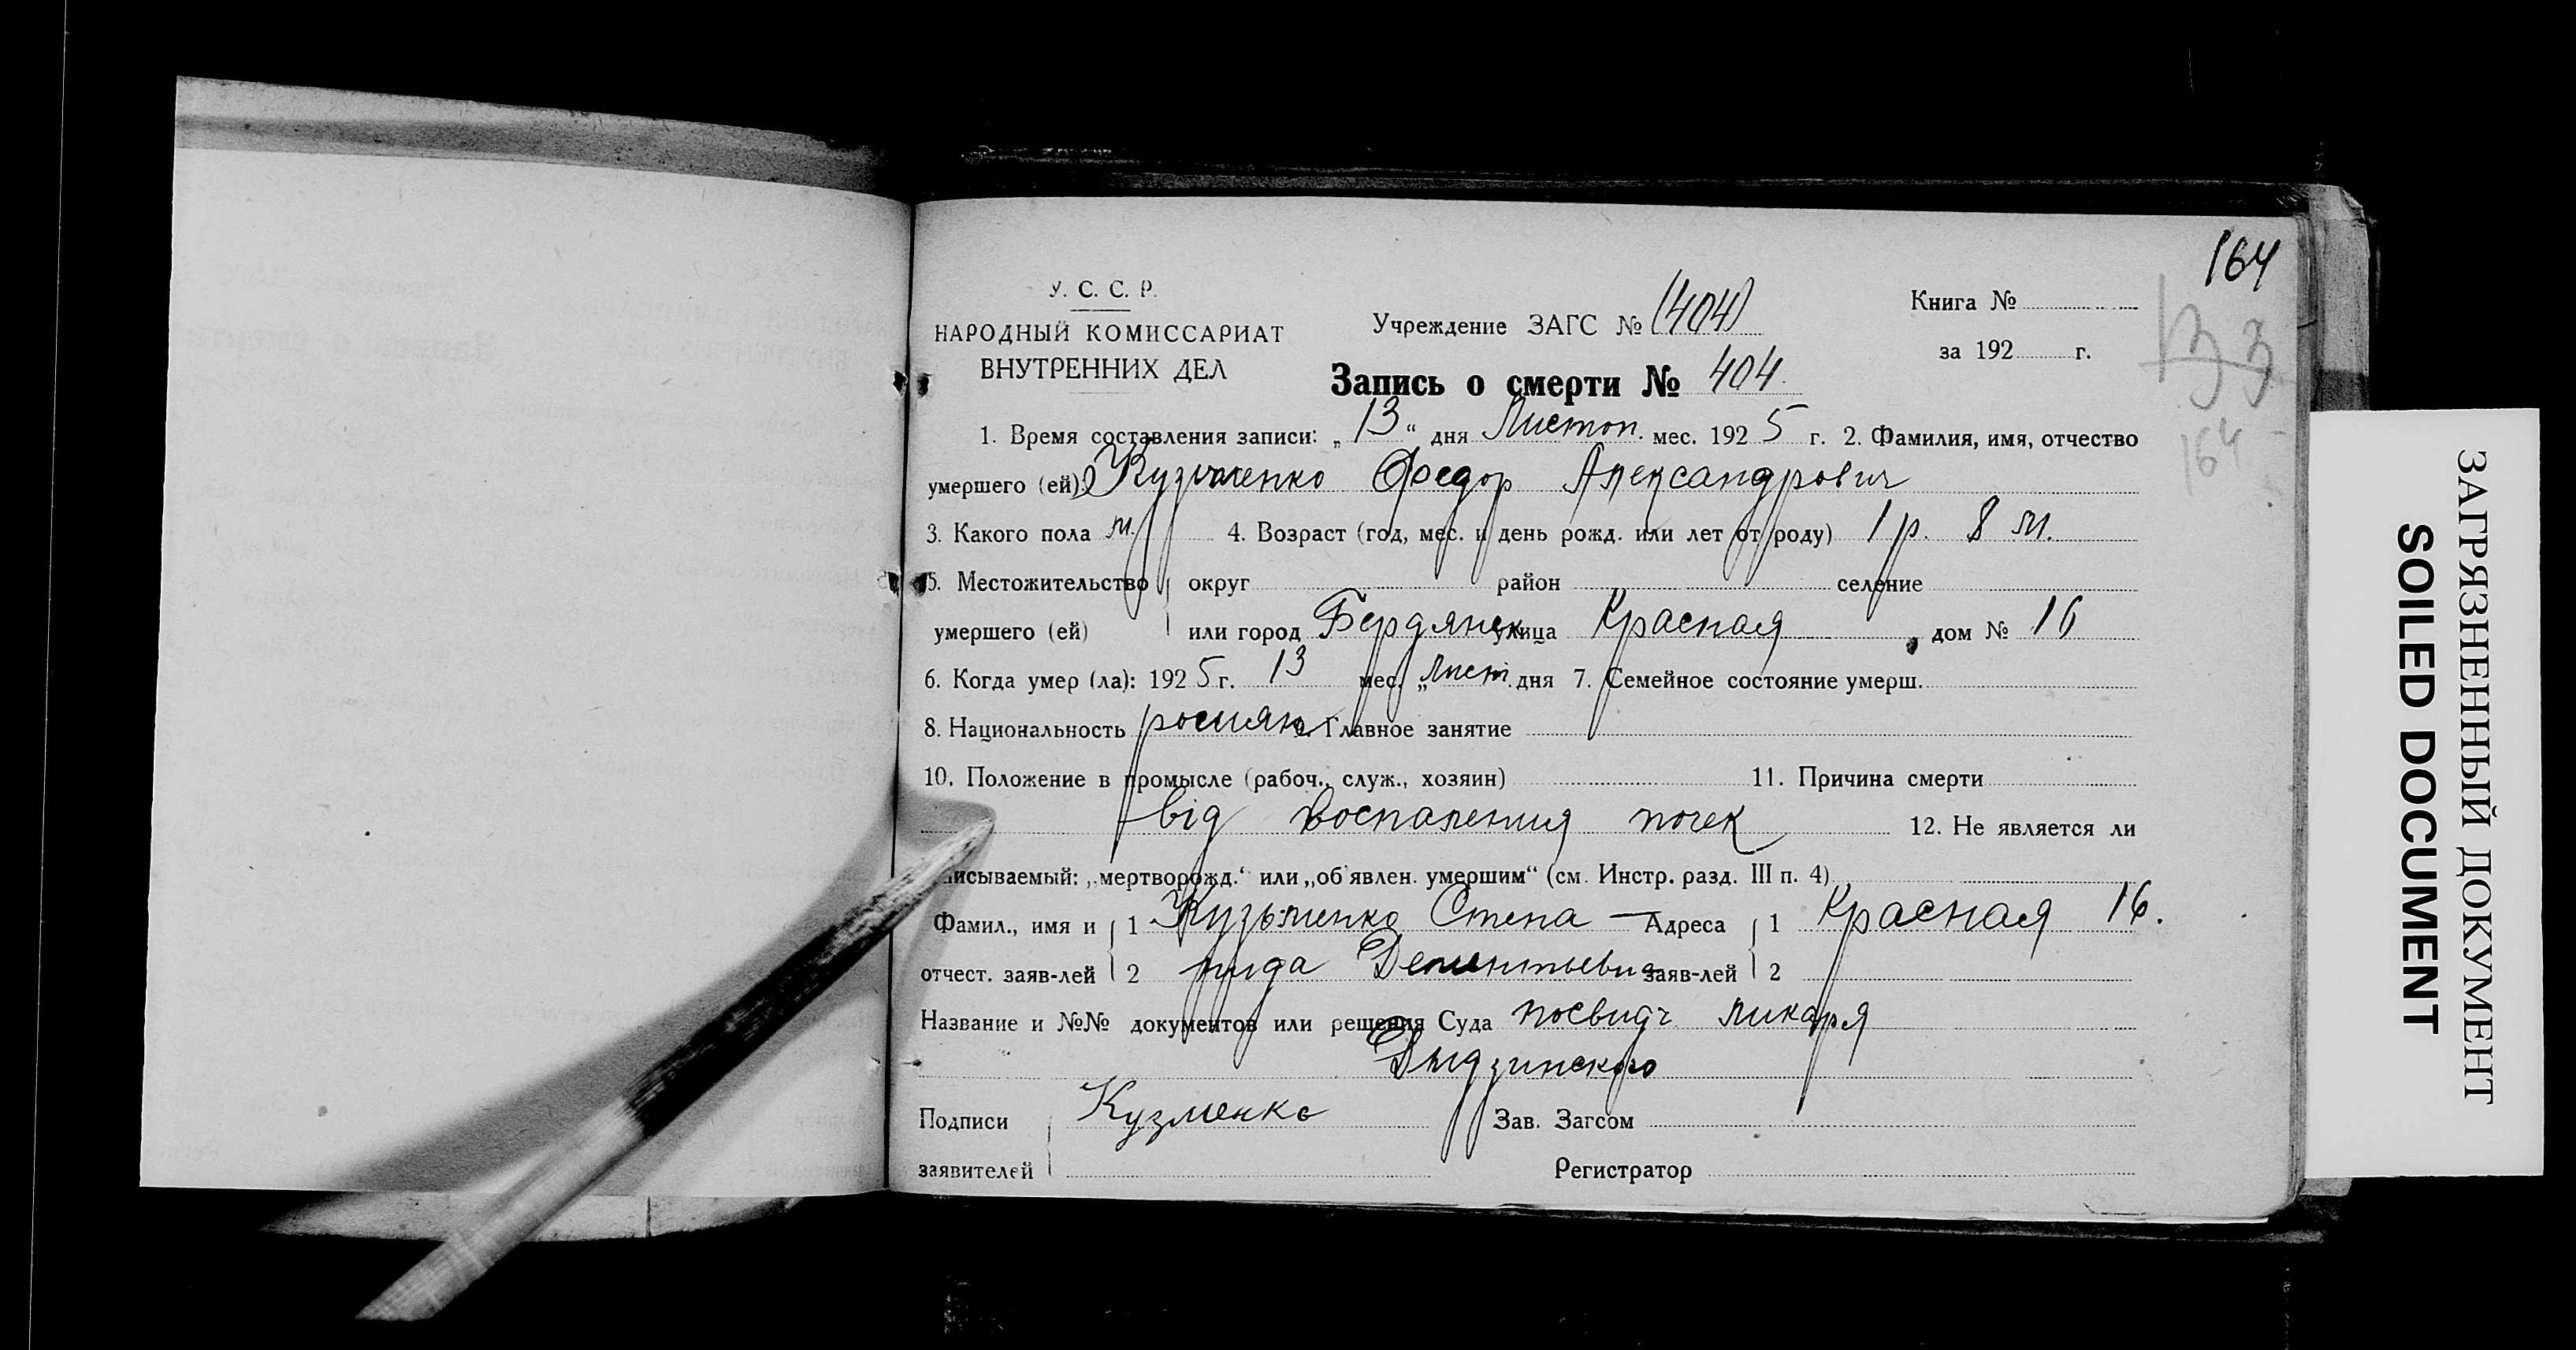 164
У. С. С. Р.
НАРОДНЫЙ КОМИССАРИАТ
ВНУТРЕННИХ ДЕЛ
Учреждение ЗАГС № (404)
Книга №
за 192 г.
133
164
Запись о смерти № 404.
1. Время составления записи: „ 13 “ дня Листоп. мес. 1925 г. 2. Фамилия, имя, отчество
умершего (ей): Кузьменко Федор Александрович
3. Какого пола м. 4. Возраст (год, мес. и день рожд. или лет от роду) 1 р. 8 м.
5. Местожительство округ район селение
умершего (ей) или город Бердянск улица Красная, дом № 16
6. Когда умер (ла): 1925 г. 13 мес. „ лист. дня 7. Семейное состояние умерш.
8. Национальность росиян 9. Главное занятие
10. Положение в промысле (рабоч., служ., хозяин) 11. Причина смерти
від воспаления почек 12. Не является ли
писываемый: „мертворожд.“ или „об'явлен. умершим“ (см. Инстр. разд. III п. 4)
Фамил., имя и 1 Кузьменко Степа — Адреса 1 Красная 16.
отчест. заяв-лей 2 нида Дементьевна заяв-лей 2
Название и №№ документов или решения Суда посвидч ликаря
Дыдзинского
Подписи Кузменко Зав. Загсом
заявителей Регистратор
ЗАГРЯЗНЕННЫЙ ДОКУМЕНТ
SOILED DOCUMENT